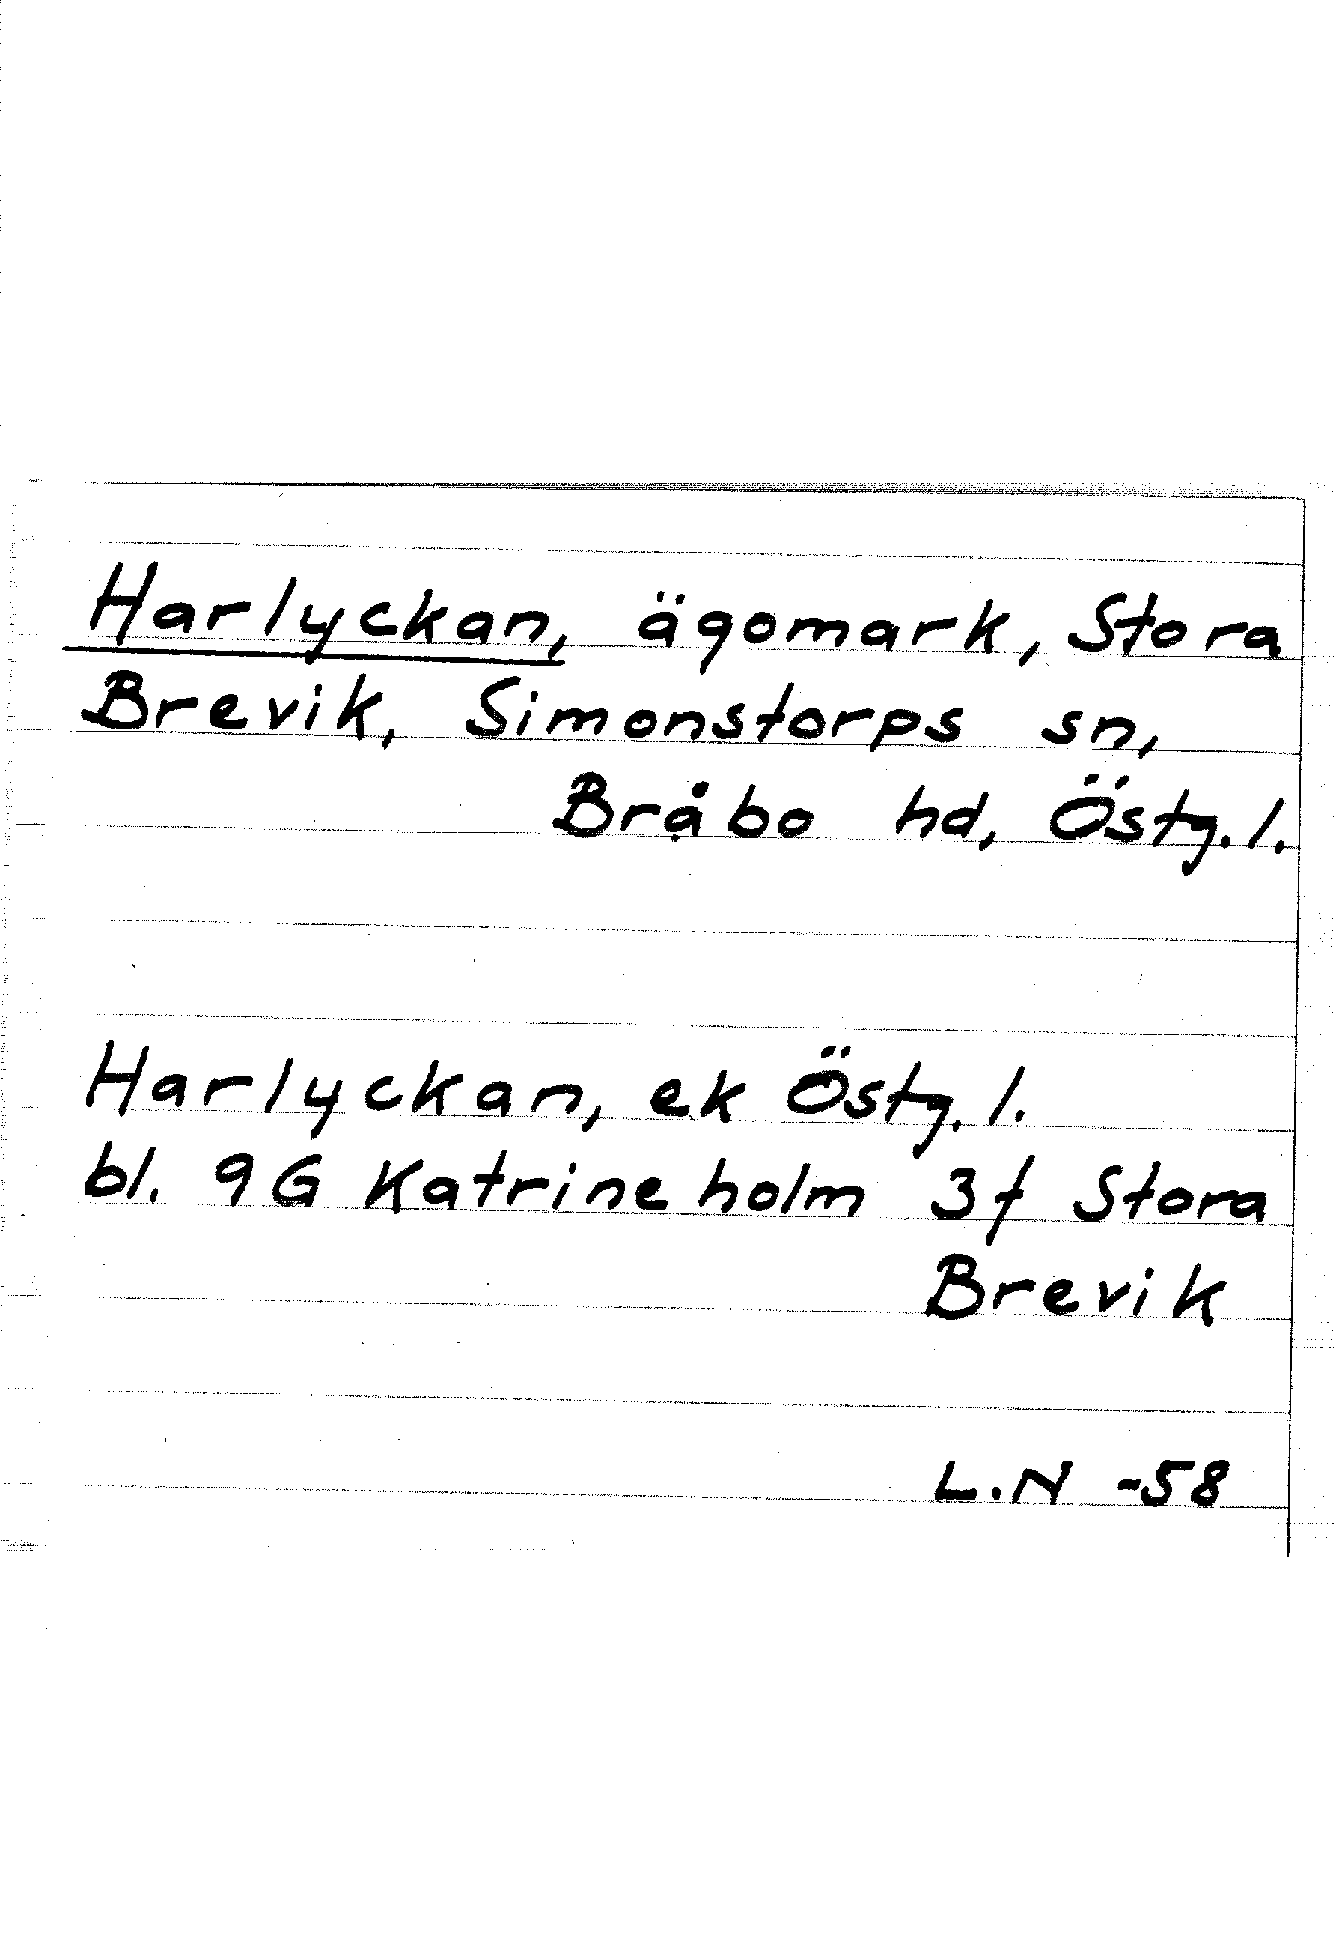 Harlyckan, ägomark, Stora
Brevik, Simonstorps sn,
Bråbo hd, Östg. l.
Harlyckan, ek Östg. l.
bl. 9G Katrineholm 3f Stora
Brevik
L.N -58